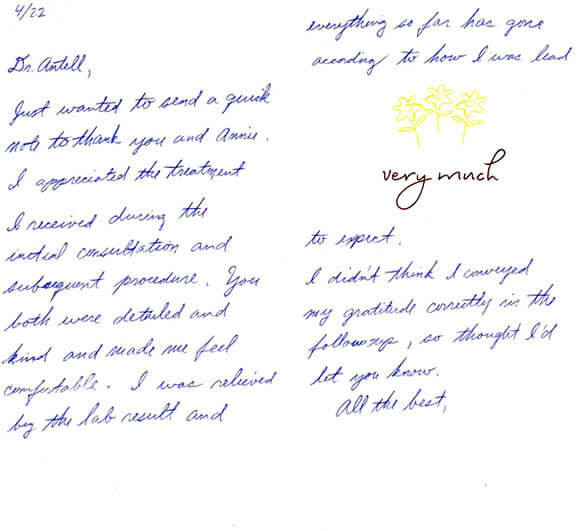 4/22
Dr. Antell,
Just wanted to send a quick
note to thank you and Annie.
I appreciated the treatment
I received during the
initial consultation and
subsequent procedure. You
both were detailed and
kind and made me feel
comfortable. I was relieved
by the lab result and
everything so far has gone
according to how I was lead
very much
to expect.
I didn't think I conveyed
my gratitude correctly in the
followups, so thought I'd
let you know.
All the best,